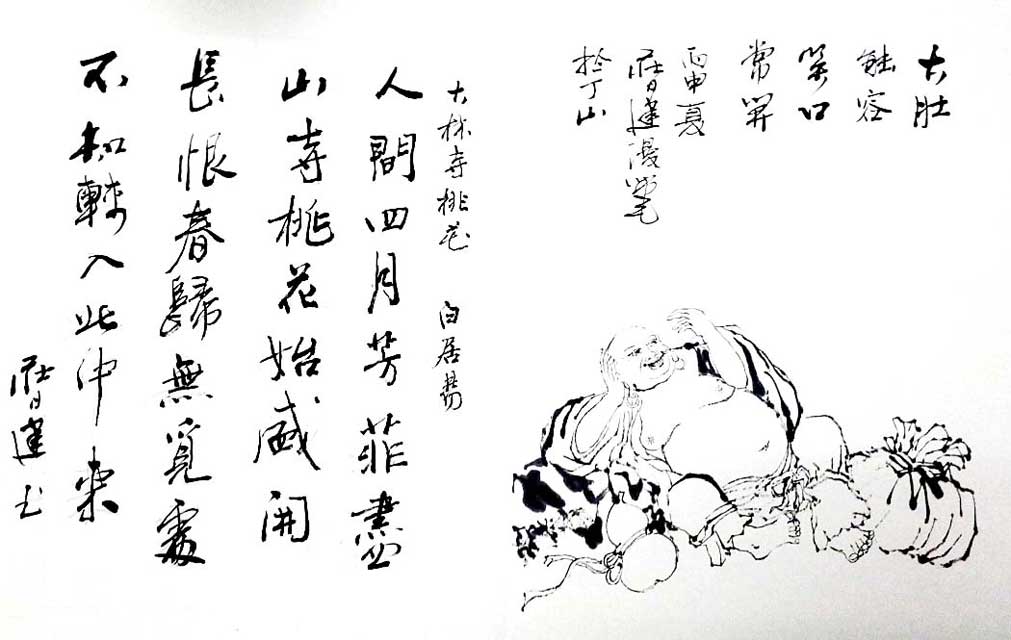 大肚
能容
笑口
常開
丙申夏
曆建漫笔
於丁山
大林寺桃花 白居易
人間四月芳菲盡
山寺桃花始盛開
長恨春歸無覓處
不知轉入此中來
曆建书